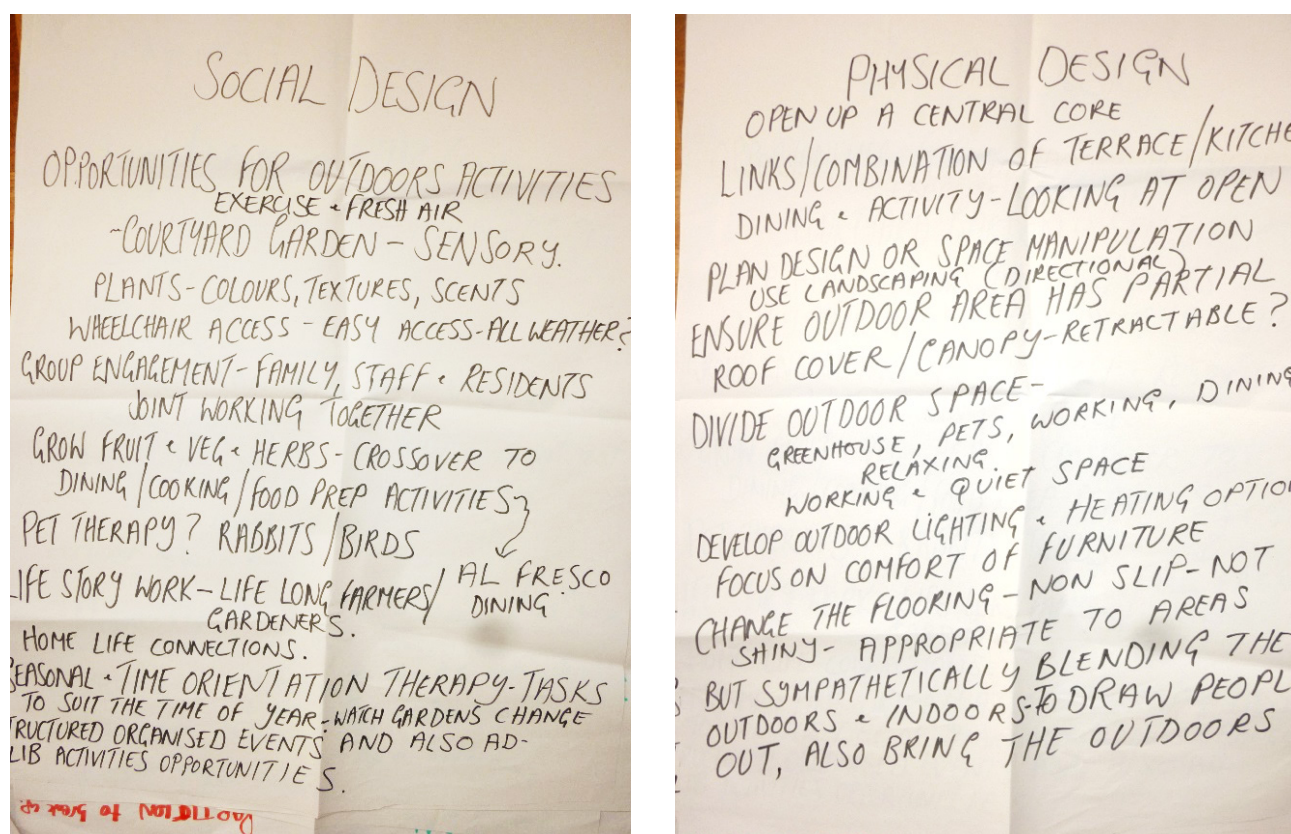 SOCIAL DESIGN
OPPORTUNITIES FOR OUTDOORS ACTIVITIES
EXERCISE & FRESH AIR
-COURTYARD GARDEN - SENSORY.
PLANTS-COLOURS, TEXTURES, SCENTS
WHEELCHAIR ACCESS - EASY ACCESS-ALL WEATHER?
GROUP ENGAGEMENT- FAMILY, STAFF & RESIDENTS
JOINT WORKING TOGETHER
GROW FRUIT & VEG & HERBS- CROSSOVER TO
DINING/COOKING/FOOD PREP ACTIVITIES
PET THERAPY? RABBITS/BIRDS
AL FRESCO
DINING
LIFE STORY WORK-LIFE LONG FARMERS/
GARDENERS.
HOME LIFE CONNECTIONS.
SEASONAL & TIME ORIENTATION THERAPY-TASKS
TO SUIT THE TIME OF YEAR-WATCH GARDENS CHANGE
TRUCTURED ORGANISED EVENTS AND ALSO AD-
LIB ACTIVITIES OPPORTUNITIES.
to break up.
PHYSICAL DESIGN
OPEN UP A CENTRAL CORE
LINKS/COMBINATION OF TERRACE/KITCHE
DINING & ACTIVITY-LOOKING AT OPEN
PLAN DESIGN OR SPACE MANIPULATION
USE LANDSCAPING (DIRECTIONAL)
ENSURE OUTDOOR AREA HAS PARTIAL
ROOF COVER/CANOPY-RETRACTABLE?
DIVIDE OUTDOOR SPACE-
GREENHOUSE, PETS, WORKING, DINING
RELAXING.
WORKING & QUIET SPACE
DEVELOP OUTDOOR LIGHTING & HEATING OPTION
FOCUS ON COMFORT OF FURNITURE
CHANGE THE FLOORING - NON SLIP-NOT
SHINY- APPROPRIATE TO AREAS
BUT SYMPATHETICALLY BLENDING THE
OUTDOORS & INDOORS-TO DRAW PEOPL
OUT, ALSO BRING THE OUTDOORS